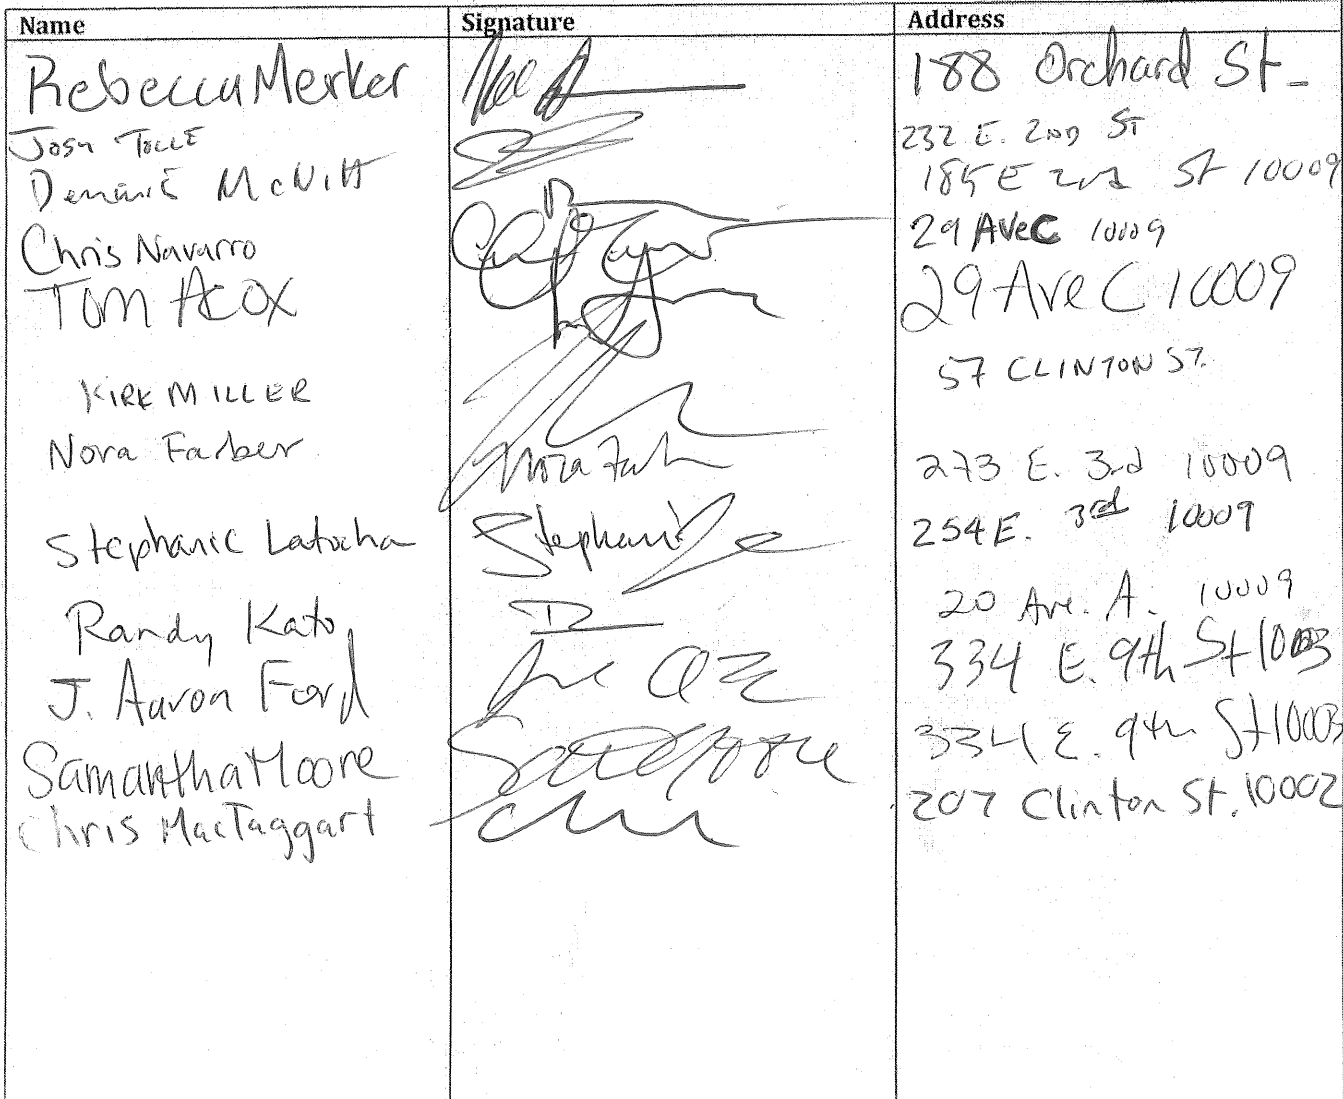 Name Signature Address
Rebecca Merker 188 Orchard St.
Josh Tolle 232 E. 2nd St
Dominic McNitt 185 E 2nd St 10009
Chris Navarro 29 Ave C 10009
Tom Acox 29 Ave C 10009
KIRK MILLER 57 CLINTON ST.
Nora Farber Nora 273 E. 3rd 10009
Stephanie Latocha Stephanie 254 E. 3rd 10009
Randy Kato 20 Ave. A. 10009
J. Aaron Ford 334 E. 9th St 10003
Samantha Moore 334 E. 9th St 10003
Chris MacTaggart 207 Clinton St. 10002